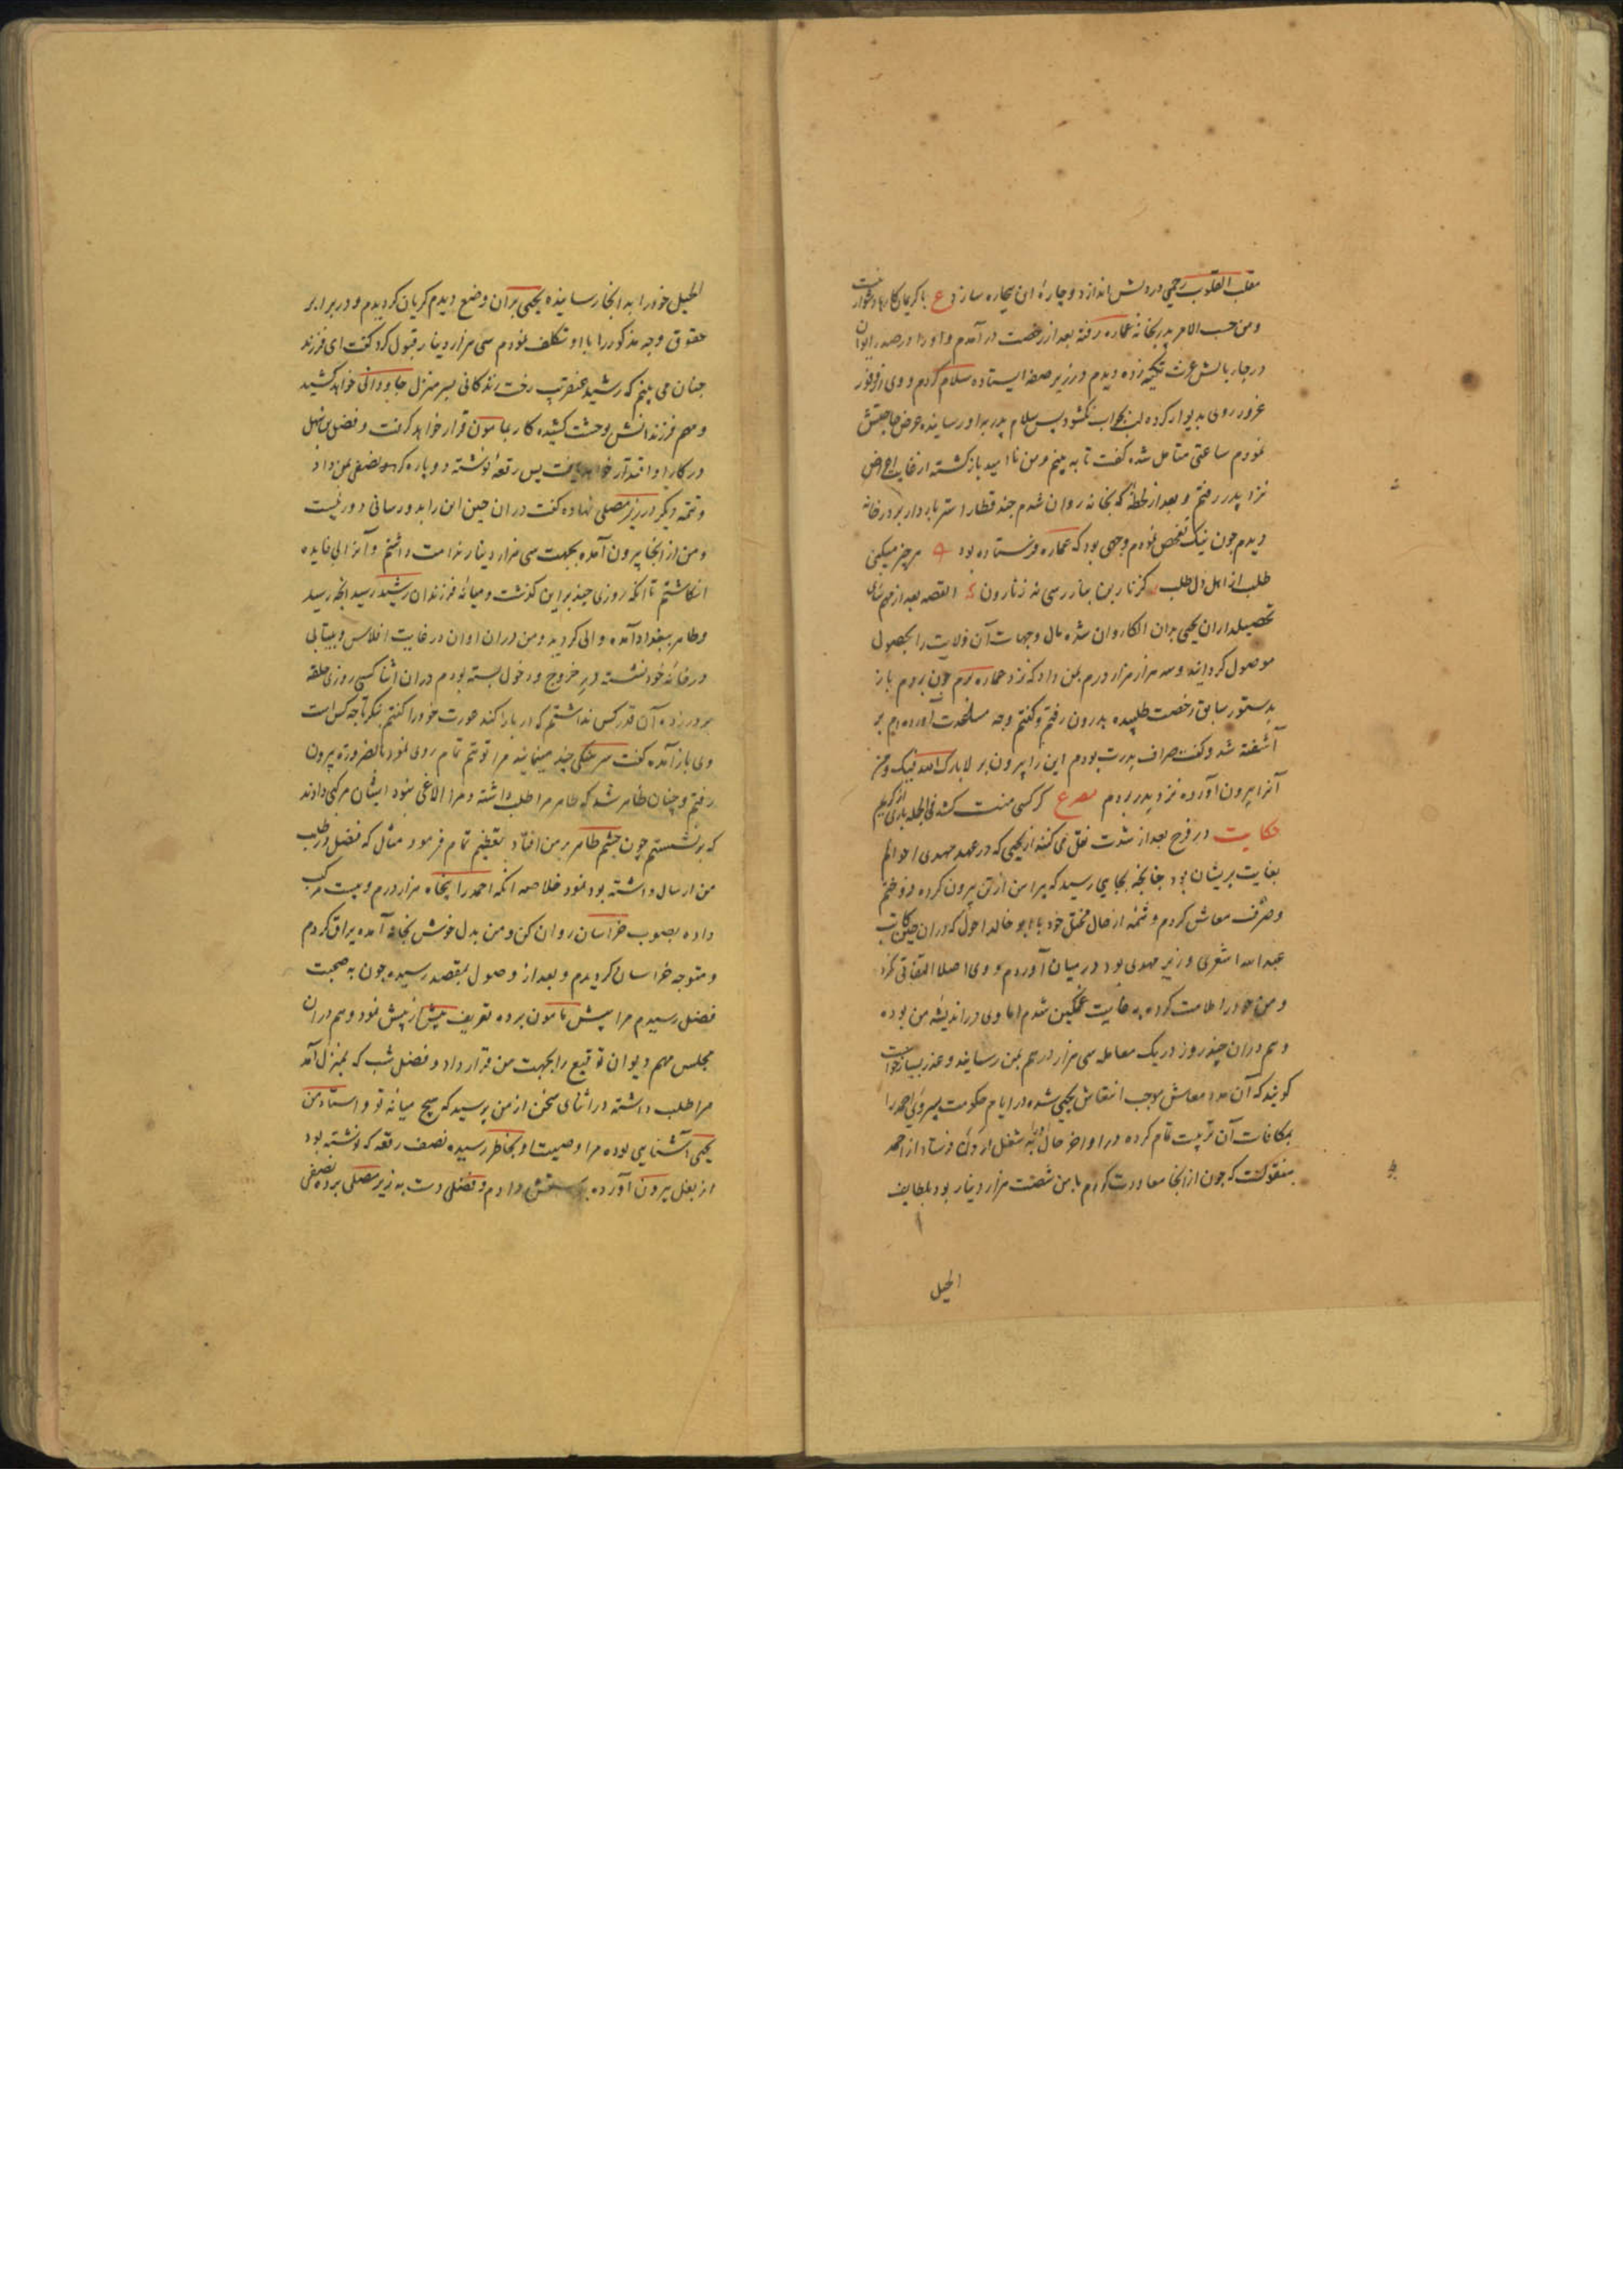 مقلب القلوب رحمی در دلش اندازد و چارهٔ این بیچاره سازد ع با کریمان کارها دشوار نیست
و من حسب الامر پدر بخانهٔ عماره رفته بعد از رخصت در آمدم و او را در صدر ایوان
در چار بالش عزت تکیه زده دیدم در زیر صفه ایستاده سلام کردم و وی از وفور
غرور روی بدیوار کرده لب بجواب نکشود پس سلام پدر به او رسانیده عرض حاجتش
نمودم ساعتی متامل شده گفت تا به بینم و من نا امید بازگشته از غایت اعراض
نزد پدر رفتم و بعد از لحظهٔ که بخانه روان شدم چند قطار استر باردار بر در خانه
دیدم چون نیک تفحص نمودم وجهی بود که عماره فرستاده بود هر چیز میکنی
طلب از اهل دل طلب القصه بعد از مهم سازی
تحصیلداران یحیی بدان الکا روان شده مال و جهات آن ولایت را بحصول
موصول گردانید و سه هزار هزار درم بمن داد که نزد عماره برم چون بردم باز
بدستور سابق رخصت طلبیده بدرون رفتم و گفتم وجه آورده‌ام بر
آشفته شد و گفت صراف پدرت بودم این را بیرون بر لا بارک الله فیک و من
آنرا بیرون آورده نزد پدر بردم مصرع گر کسی منت کشد فی الجمله باری از کریم
حکایت در فرج بعد از شدت نقل می کنند از یحیی که در عهد مهدی احوالم
بغایت پریشان بود چنانچه بجایی رسید که پیراهن از تن بیرون کرده فروختم
و صرف معاش کردم و شمهٔ از حال مختل خود با ابو خالد احول که در ان حین کاتب
عبد الله اشعری وزیر مهدی بود در میان آوردم و وی اصلا التفاتی نکرد
و من خود را ملامت کرده به غایت غمگین شدم اما وی در اندیشهٔ من بوده
و هم در ان چند روز در یک معامله سی هزار درهم بمن رسانید و عذر بسیار خواست
گویند که آن مدد معاش موجب انتعاش یحیی شده در ایام حکومت پسر وی احمد را
بمکافات آن تربیت تمام کرده در اواخر حال شغل اردن فرستاد از احمد
منقولست که چون از انجا معاودت کردم با من شصت هزار دینار بود بلطایف
الحیل
الحیل خود را به انجا رسانیده یحیی بر ان وضع دیدم گریان گردیدم و در برابر
حقوق وجه مذکور را با او تکلف نمودم سی هزار دینار قبول کرد گفت ای فرزند
چنان می بینم که رشید عنقریب رخت زندگانی بسر منزل جاودانی خواهد کشید
و مهم فرزندانش بوحشت کشیده کار بمامون قرار خواهد گرفت و فضل بن سهل
در کار او اقتدار خواهد یافت پس رقعهٔ نوشته دو پاره کرد و نصفی بمن داد
و تتمه دیگر در زیر مصلی نهاده گفت در ان حین این را بدو رسانی دور نیست
و من از انجا بیرون آمده بجهت سی هزار دینار ندامت داشتم و آنرا بی فایده
انکاشتم تا انکه روزی چند برین گذشت و میانهٔ فرزندان رشید رسید انچه رسید
و طاهر ببغداد آمده والی گردید و من در ان اوان در غایت افلاس و بیتابی
در خانهٔ خود نشسته در خروج و دخول بسته بودم در ان اثنا کسی روزی حلقه
بر در زده آن قدر کس نداشتم که در باز کند عورت خود را گفتم بنگر تا چه کس است
وی باز آمده گفت سرهنگی چند مینماید مرا توهم تمام روی نمود بالضروره بیرون
رفتم و چنان ظاهر شد که طاهر مرا طلب داشته و مرا الاغی نبود ایشان مرکبی دادند
که برنشستم چون چشم طاهر بر من افتاد تعظیم تمام فرمود مثال که فضل در طلب
من ارسال داشته بود نمود خلاصه آنکه احمد را پنجاه هزار درم و بیست مرکب
داده بصوب خراسان روان کن و من بدل خوش بخانه آمده یراق کردم
و متوجه خراسان گردیدم و بعد از وصول بمقصد رسیده چون به صحبت
فضل رسیدم مرا پیش مامون برده تعریف بیش از پیش نمود و هم در ان
مجلس مهم دیوان توقیع را بجهت من قرار داد و فضل شب که بمنزل آمد
مرا طلب داشته در اثنای سخن از من پرسید که هیچ میانهٔ تو و استاد من
یحیی آشنایی بوده مرا وصیت او بخاطر رسیده نصف رقعه که نوشته بود
از بغل بیرون آورده بدستش دادم و فضل دست به زیر مصلی برده نصفی